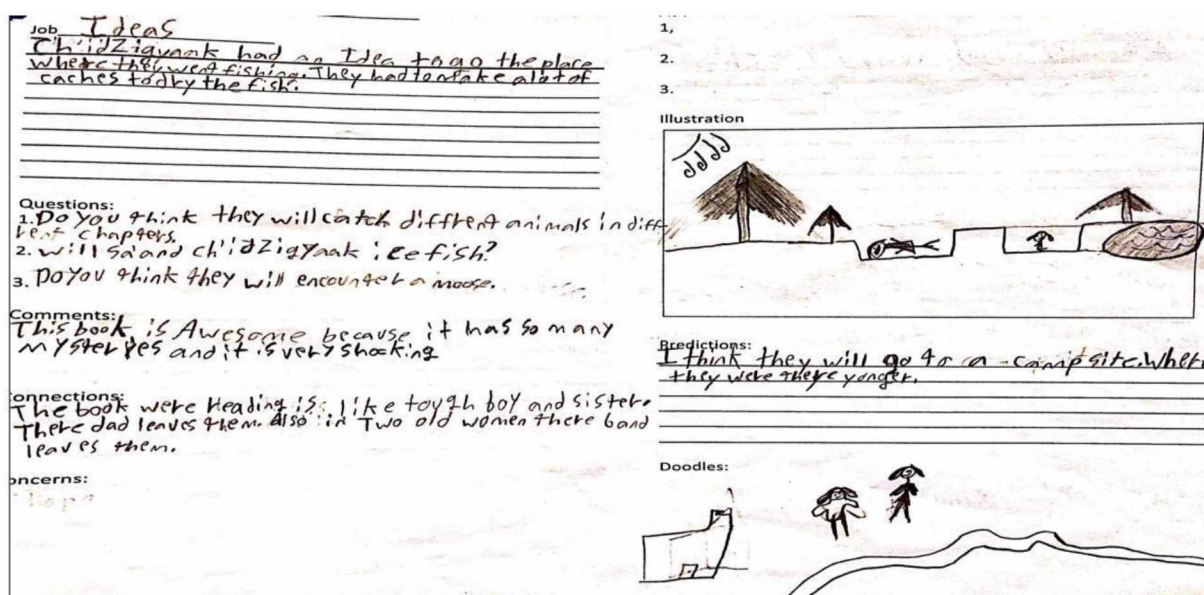 Job Ideas
Ch'idzigyaak had an Idea to go the place
where they went fishing. They had to make a lot of
caches to dry the fish.
Questions:
1. Do you think they will catch diffrent animals in diff
rent chapters.
2. will Sa' and ch'idzigyaak ice fish?
3. Do you think they will encounter a moose.
Comments:
This book is Awesome because it has so many
mysteryes and it is very shocking
onnections:
The book were Reading is like tough boy and sister.
There dad leaves them. Also in Two old women there band
leaves them.
oncerns:
1,
2.
3.
Illustration
Predictions:
I think they will go to a camp site. Wher
they were there yonger.
Doodles: